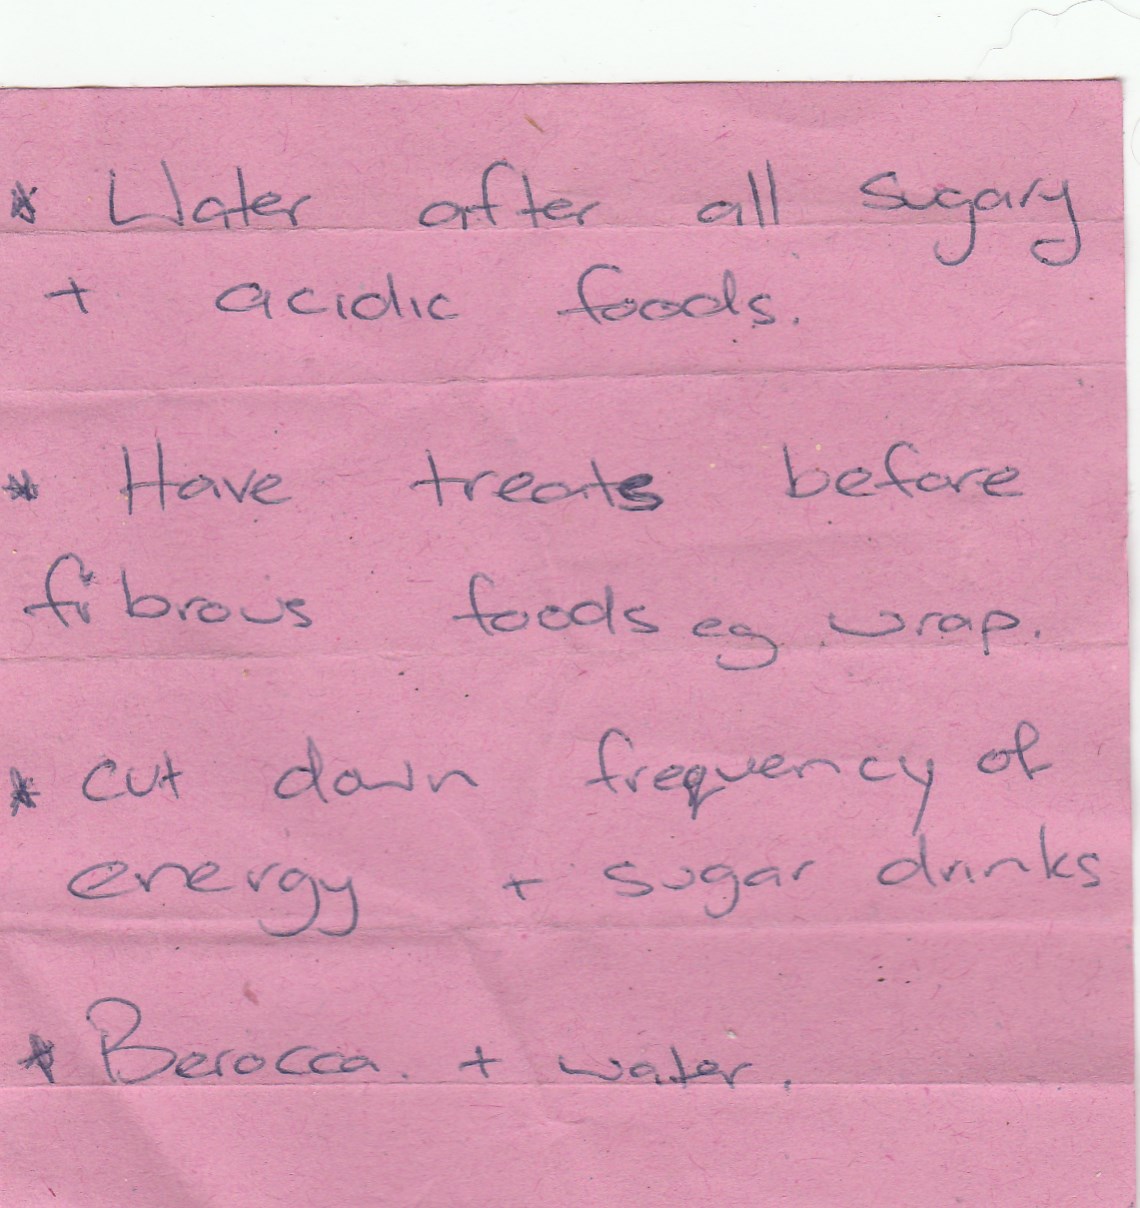 * Water after all sugary
+ acidic foods.
* Have treats before
fibrous foods eg wrap.
* cut down frequency of
energy + sugar drinks
* Berocca. + water.